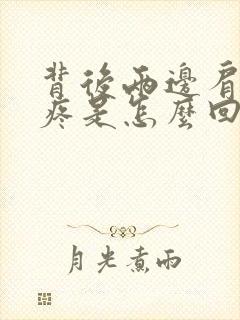 背後兩邊肩
疼是怎麼回
月光煮雨